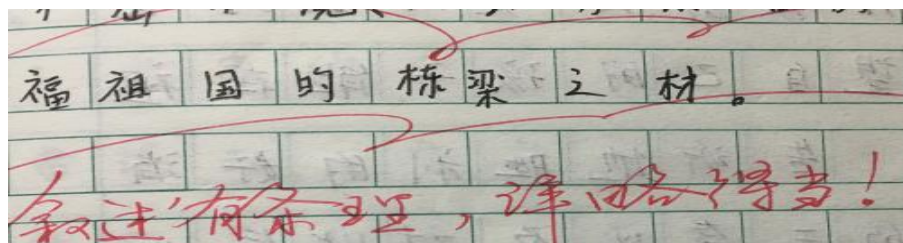 福祖国的栋梁之材。
叙述有条理，详略得当！